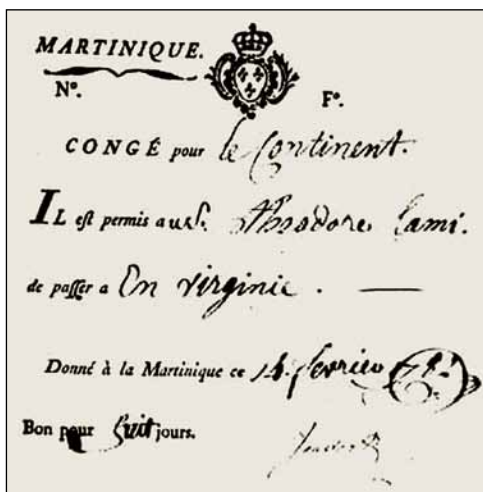 MARTINIQUE.
Nº. Fº.
CONGÉ pour le Continent.
IL est permis au Sr. Theodore Lami.
de passer a En virginie. —
Donné à la Martinique ce 14. fevrier
Bon pour huit jours.